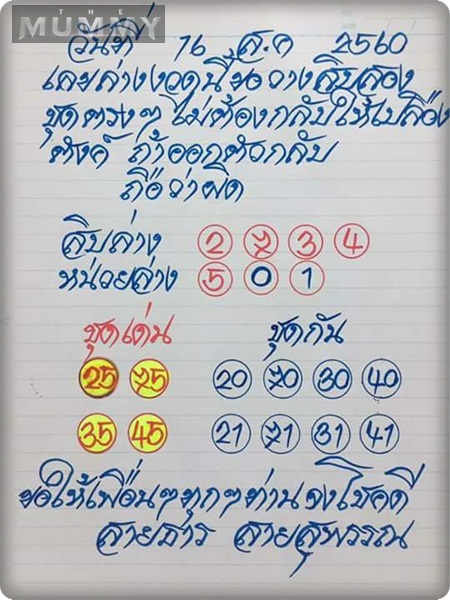 THE
MUMMY
วันที่ 16 ส.ค 2560
เลขล่างงวดนี้ขอวางสิบสอง
ชุดตรงๆ ไม่ต้องกลับให้เปลือง
ตังค์ ถ้าออกตัวกลับ
ถือว่าผิด
สิบล่าง 2 7 3 4
หน่วยล่าง 5 0 1
ชุดเด่น ชุดกัน
25 75 20 70 30 40
35 45 21 71 31 41
ขอให้เพื่อนๆทุกๆท่านจงโชคดี
สายธาร สายสุพรรณ